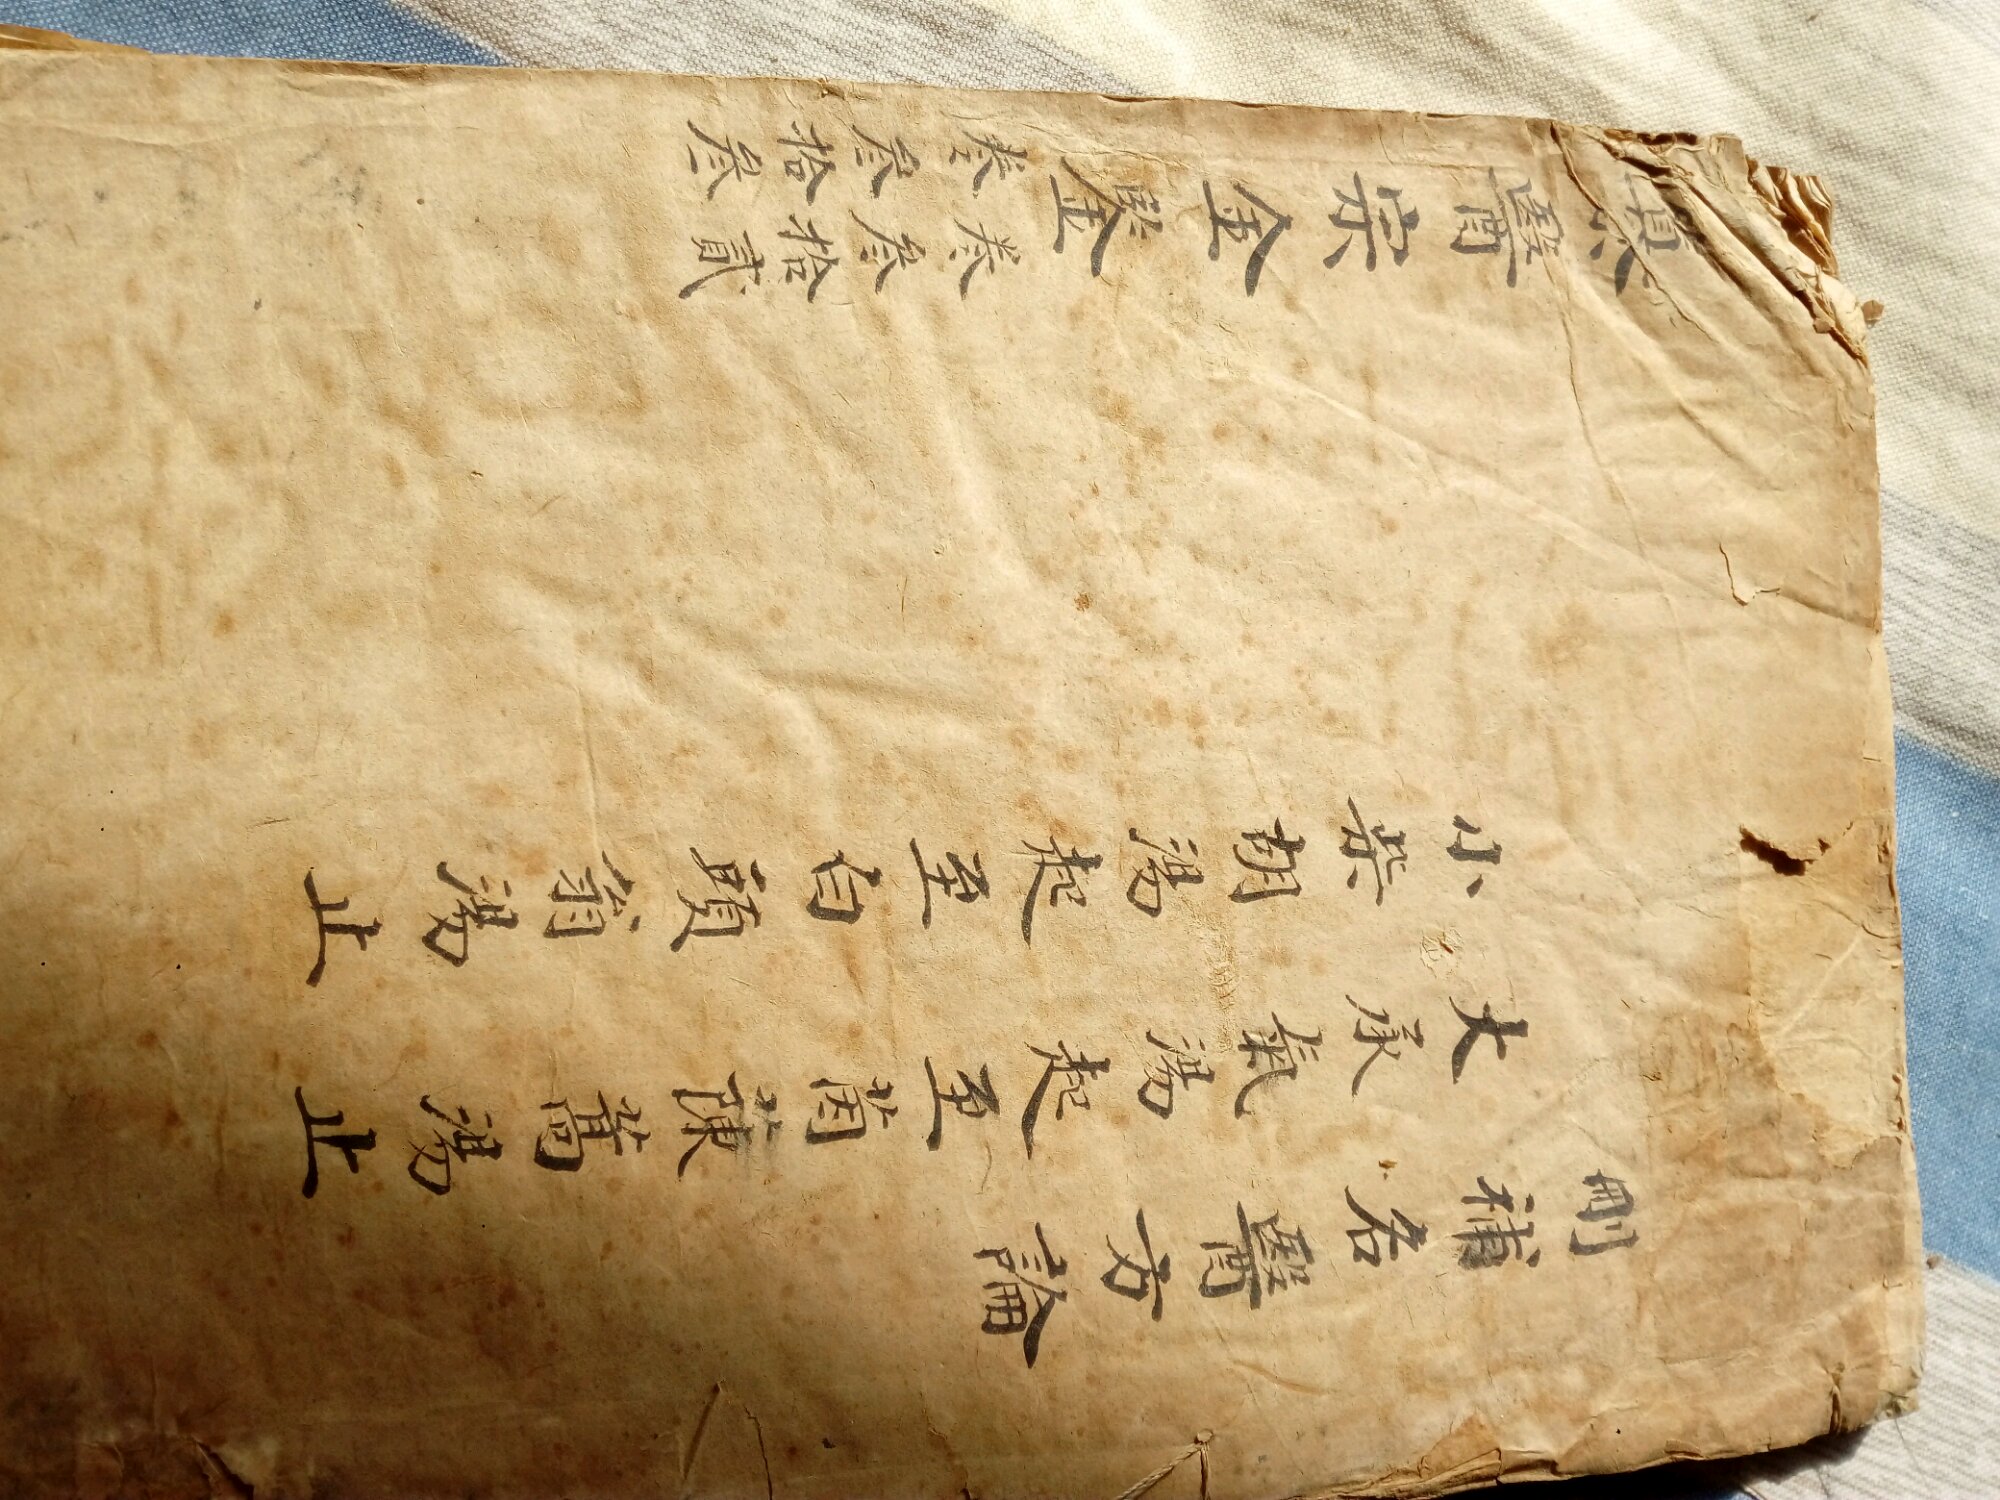 刪補名醫方論
大承氣湯起至茵蔯蒿湯止
小柴胡湯起至白頭翁湯止
纂醫宗金鋻
卷叁拾貳
卷叁拾叁